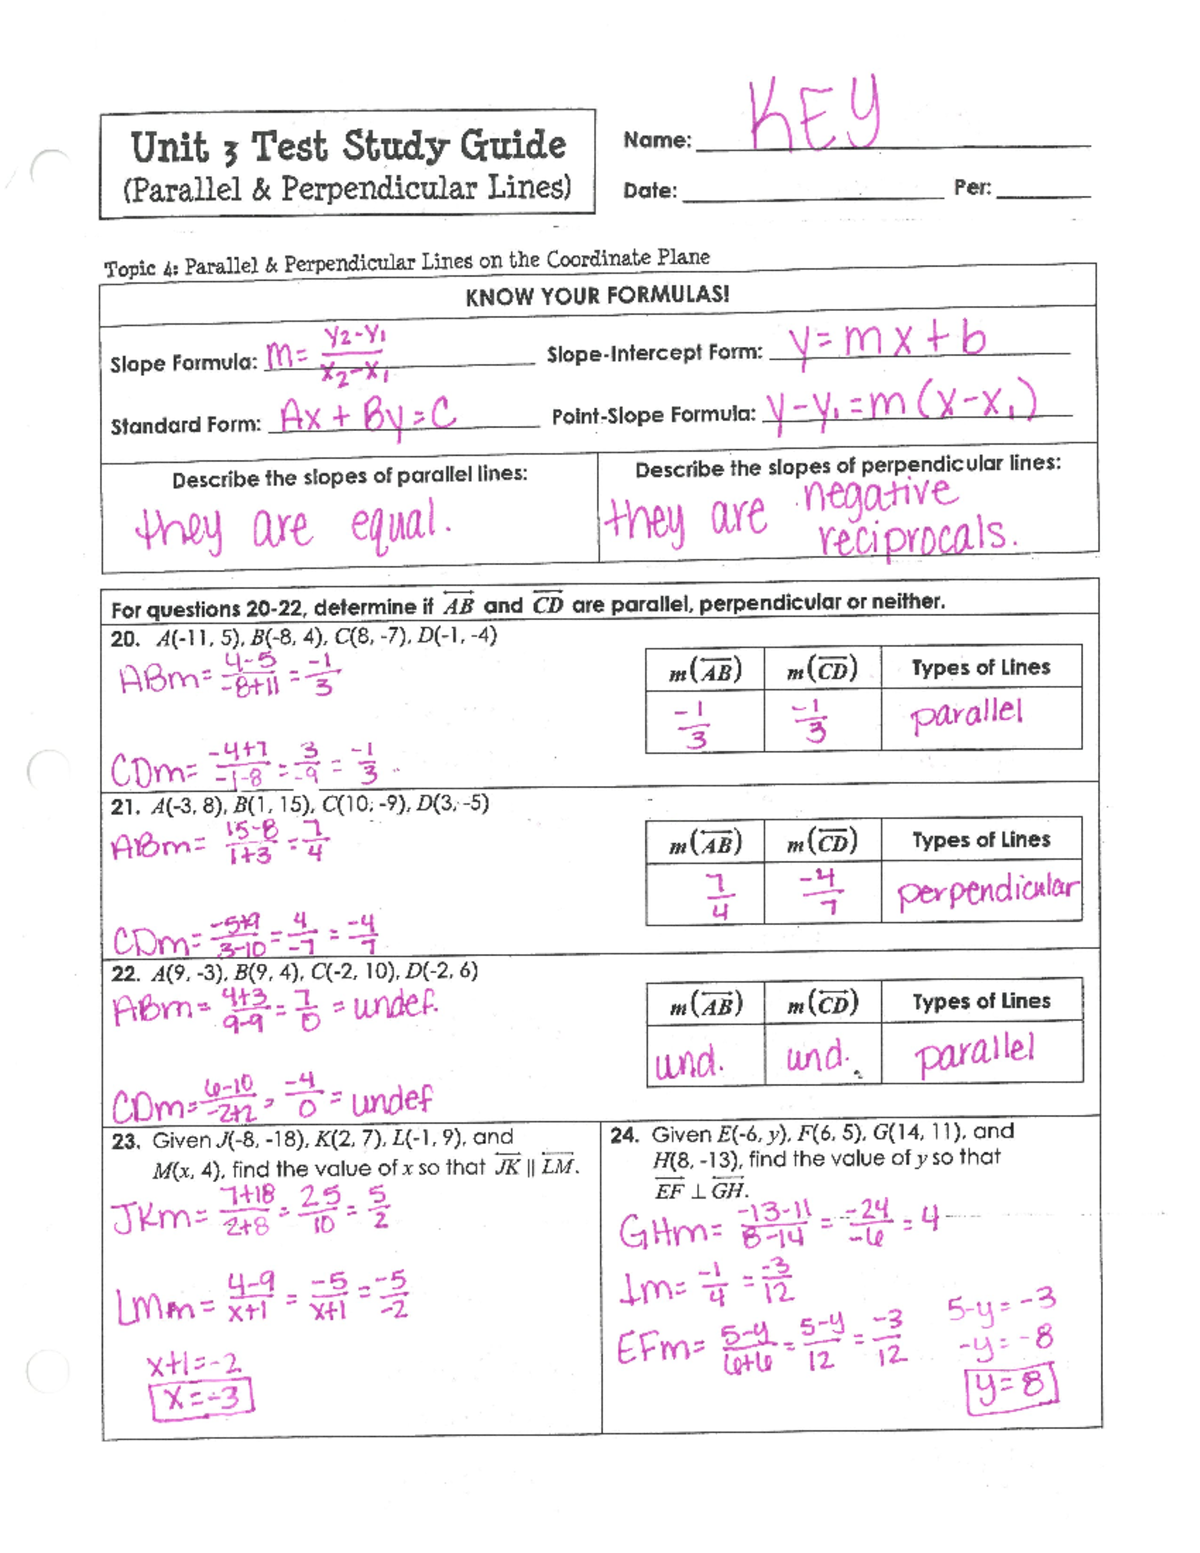 Unit 3 Test Study Guide
(Parallel & Perpendicular Lines)
Name: KEY
Date: Per:
Topic 4: Parallel & Perpendicular Lines on the Coordinate Plane
KNOW YOUR FORMULAS!
Slope Formula: m = (y₂-y₁)/(x₂-x₁) Slope-Intercept Form: y = mx + b
Standard Form: Ax + By = C Point-Slope Formula: y - y₁ = m(x - x₁)
Describe the slopes of parallel lines:
they are equal.
Describe the slopes of perpendicular lines:
they are negative
reciprocals.
For questions 20-22, determine if AB and CD are parallel, perpendicular or neither.
20. A(-11, 5), B(-8, 4), C(8, -7), D(-1, -4)
ABm = (4-5)/(-8+11) = -1/3
CDm = (-4+7)/(-1-8) = 3/-9 = -1/3
m(AB) m(CD) Types of Lines
-1/3 -1/3 parallel
21. A(-3, 8), B(1, 15), C(10, -9), D(3, -5)
ABm = (15-8)/(1+3) = 7/4
CDm = (-5+9)/(3-10) = 4/-7 = -4/7
m(AB) m(CD) Types of Lines
7/4 -4/7 perpendicular
22. A(9, -3), B(9, 4), C(-2, 10), D(-2, 6)
ABm = (4+3)/(9-9) = 7/0 = undef.
CDm = (6-10)/(-2+2) = -4/0 = undef
m(AB) m(CD) Types of Lines
und. und. parallel
23. Given J(-8, -18), K(2, 7), L(-1, 9), and
M(x, 4), find the value of x so that JK || LM.
JKm = (7+18)/(2+8) = 25/10 = 5/2
LMm = (4-9)/(x+1) = -5/(x+1) = -5/-2
x+1 = -2
x = -3
24. Given E(-6, y), F(6, 5), G(14, 11), and
H(8, -13), find the value of y so that
EF ⊥ GH.
GHm = (-13-11)/(8-14) = -24/-6 = 4
⊥m = -1/4 = -3/12
EFm = (5-y)/(6+6) = (5-y)/12 = -3/12
5-y = -3
-y = -8
y = 8